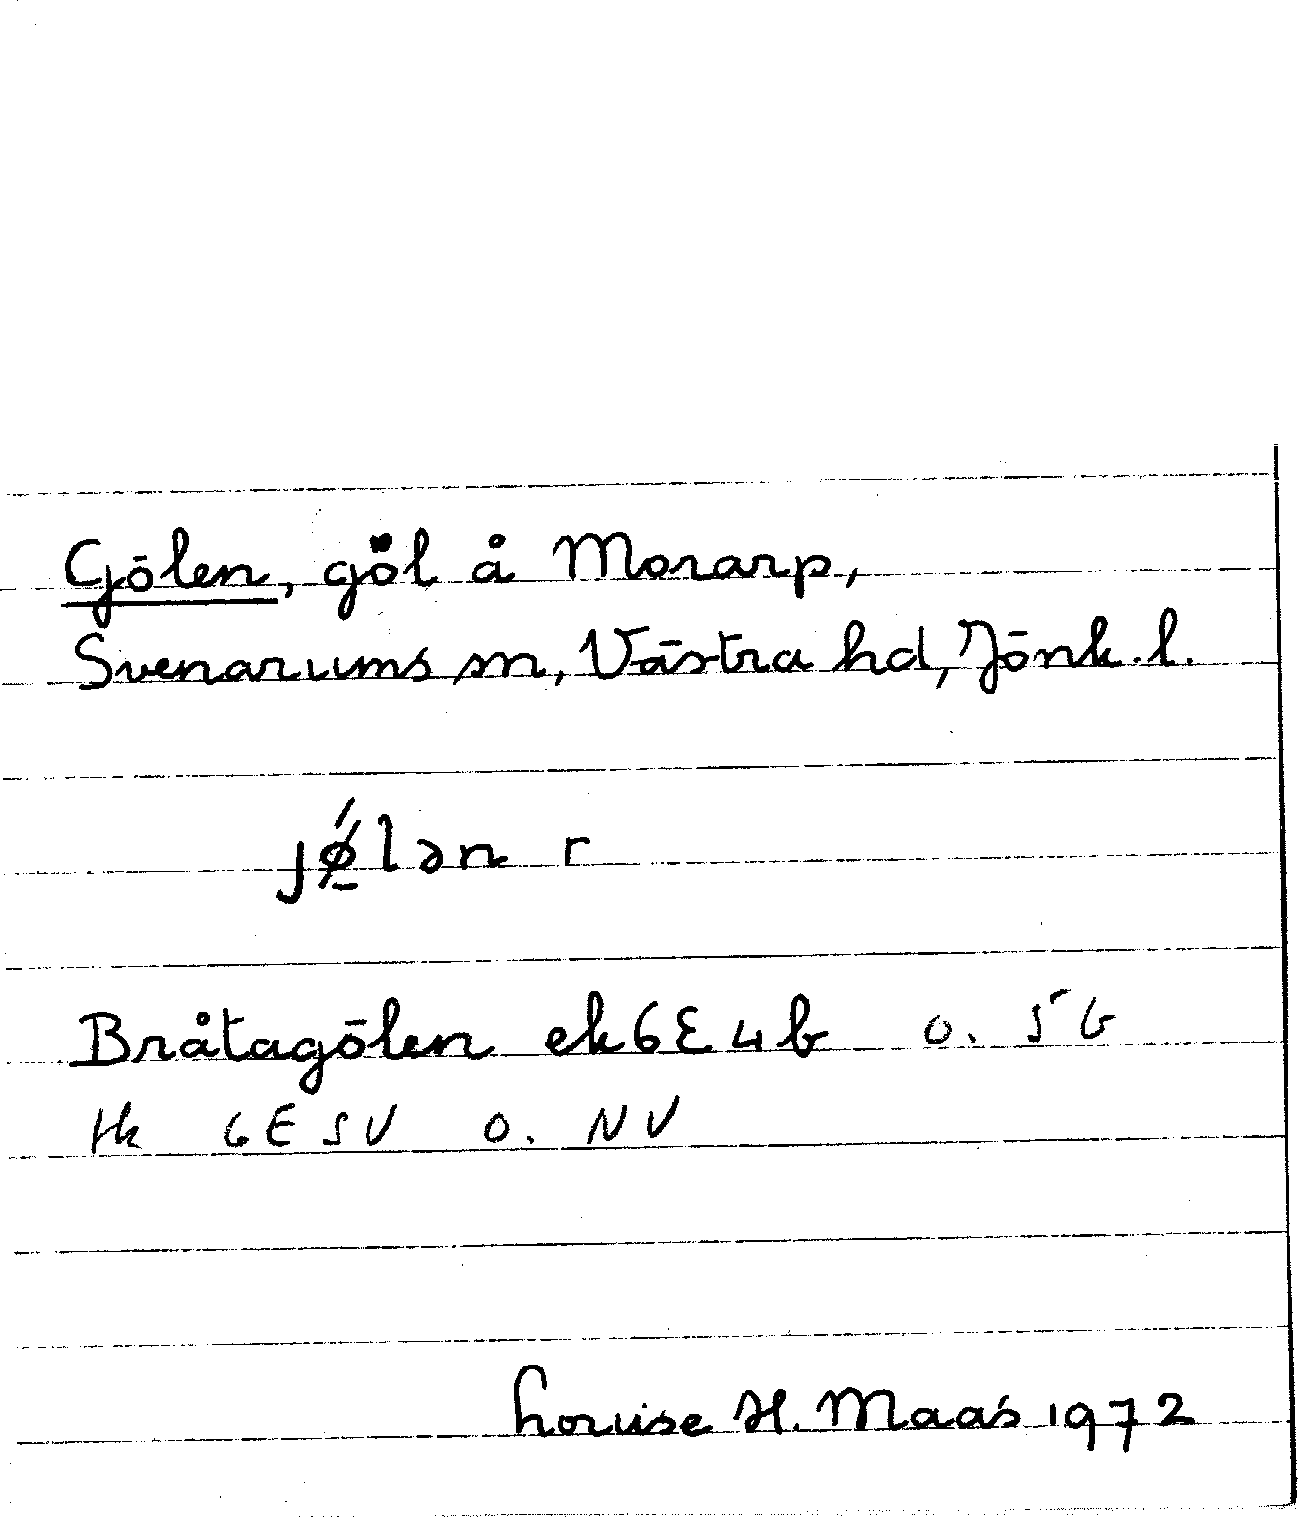 Gölen, göl å Morarp,
Svenarums sn, Västra hd, Jönk. l.
jǿ̱lən r
Bråtagölen ek6E4b o. 5b
tk 6E SV o. NV
Louise H. Maas 1972